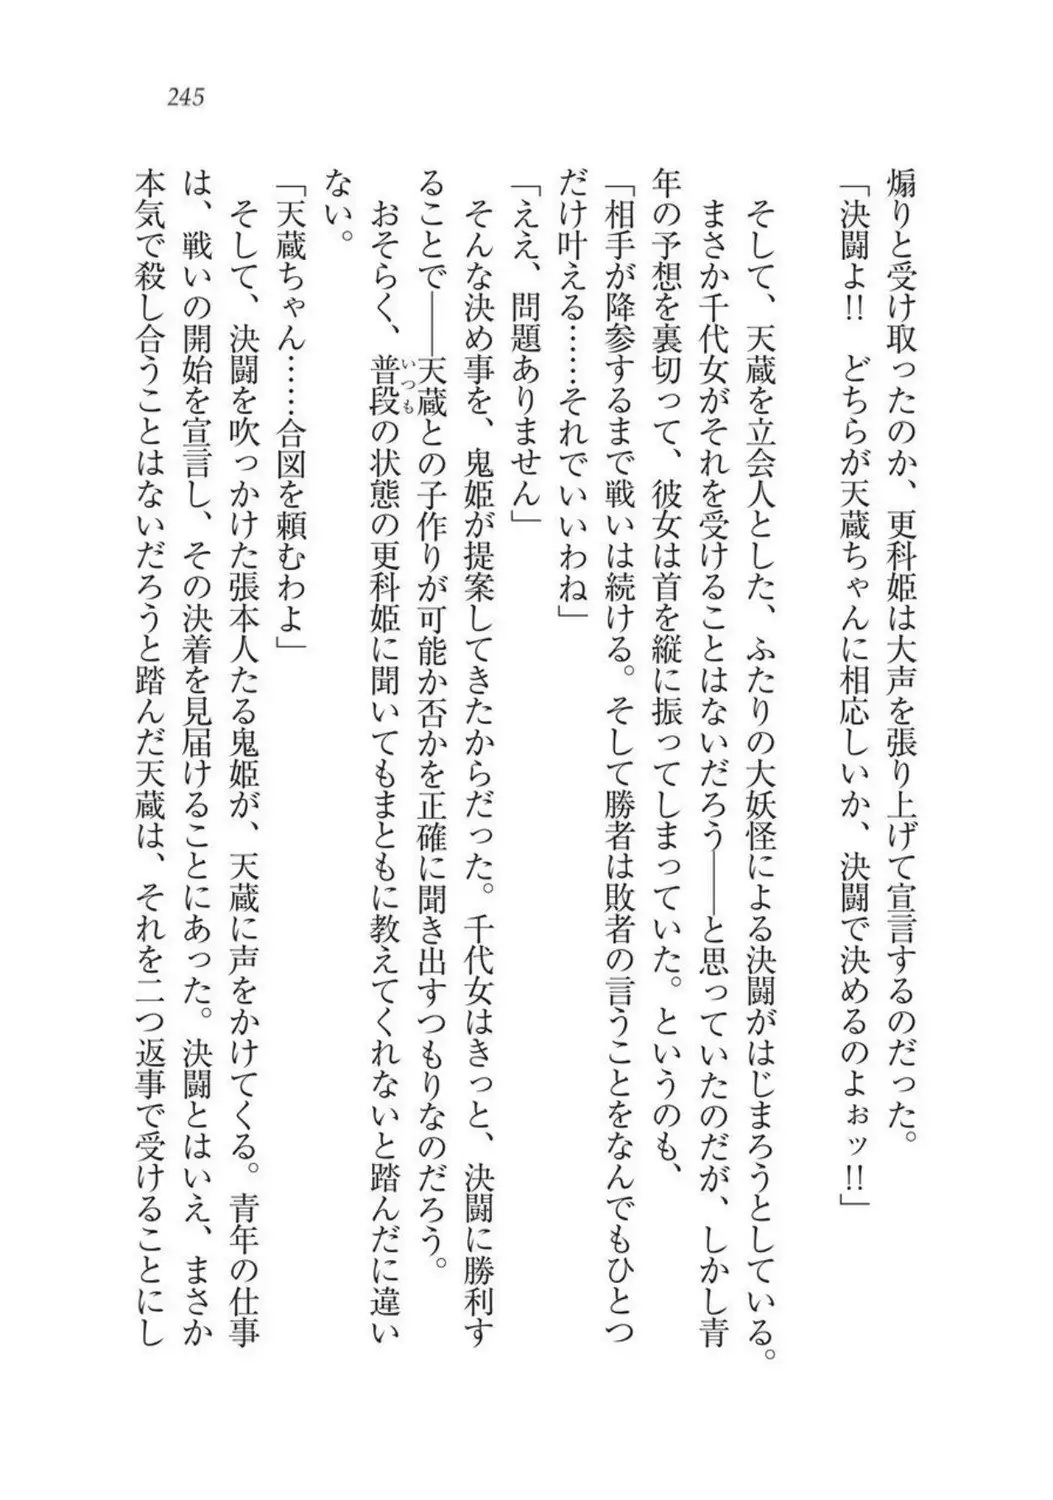 245
煽りと受け取ったのか、更科姫は大声を張り上げて宣言するのだった。
「決闘よ!!　どちらが天蔵ちゃんに相応しいか、決闘で決めるのよぉッ!!」
そして、天蔵を立会人とした、ふたりの大妖怪による決闘がはじまろうとしている。
まさか千代女がそれを受けることはないだろう――と思っていたのだが、しかし青
年の予想を裏切って、彼女は首を縦に振ってしまっていた。というのも、
「相手が降参するまで戦いは続ける。そして勝者は敗者の言うことをなんでもひとつ
だけ叶える……それでいいわね」
「ええ、問題ありません」
そんな決め事を、鬼姫が提案してきたからだった。千代女はきっと、決闘に勝利す
ることで――天蔵との子作りが可能か否かを正確に聞き出すつもりなのだろう。
おそらく、普段の状態の更科姫に聞いてもまともに教えてくれないと踏んだに違い
いつも
ない。
「天蔵ちゃん……合図を頼むわよ」
そして、決闘を吹っかけた張本人たる鬼姫が、天蔵に声をかけてくる。青年の仕事
は、戦いの開始を宣言し、その決着を見届けることにあった。決闘とはいえ、まさか
本気で殺し合うことはないだろうと踏んだ天蔵は、それを二つ返事で受けることにし